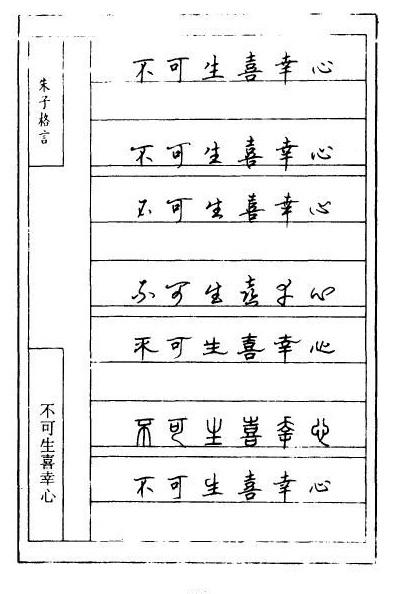 朱子格言
不可生喜幸心
不可生喜幸心
不可生喜幸心
不可生喜幸心
不可生喜幸心
不可生喜幸心
不可生喜幸心
不可生喜幸心